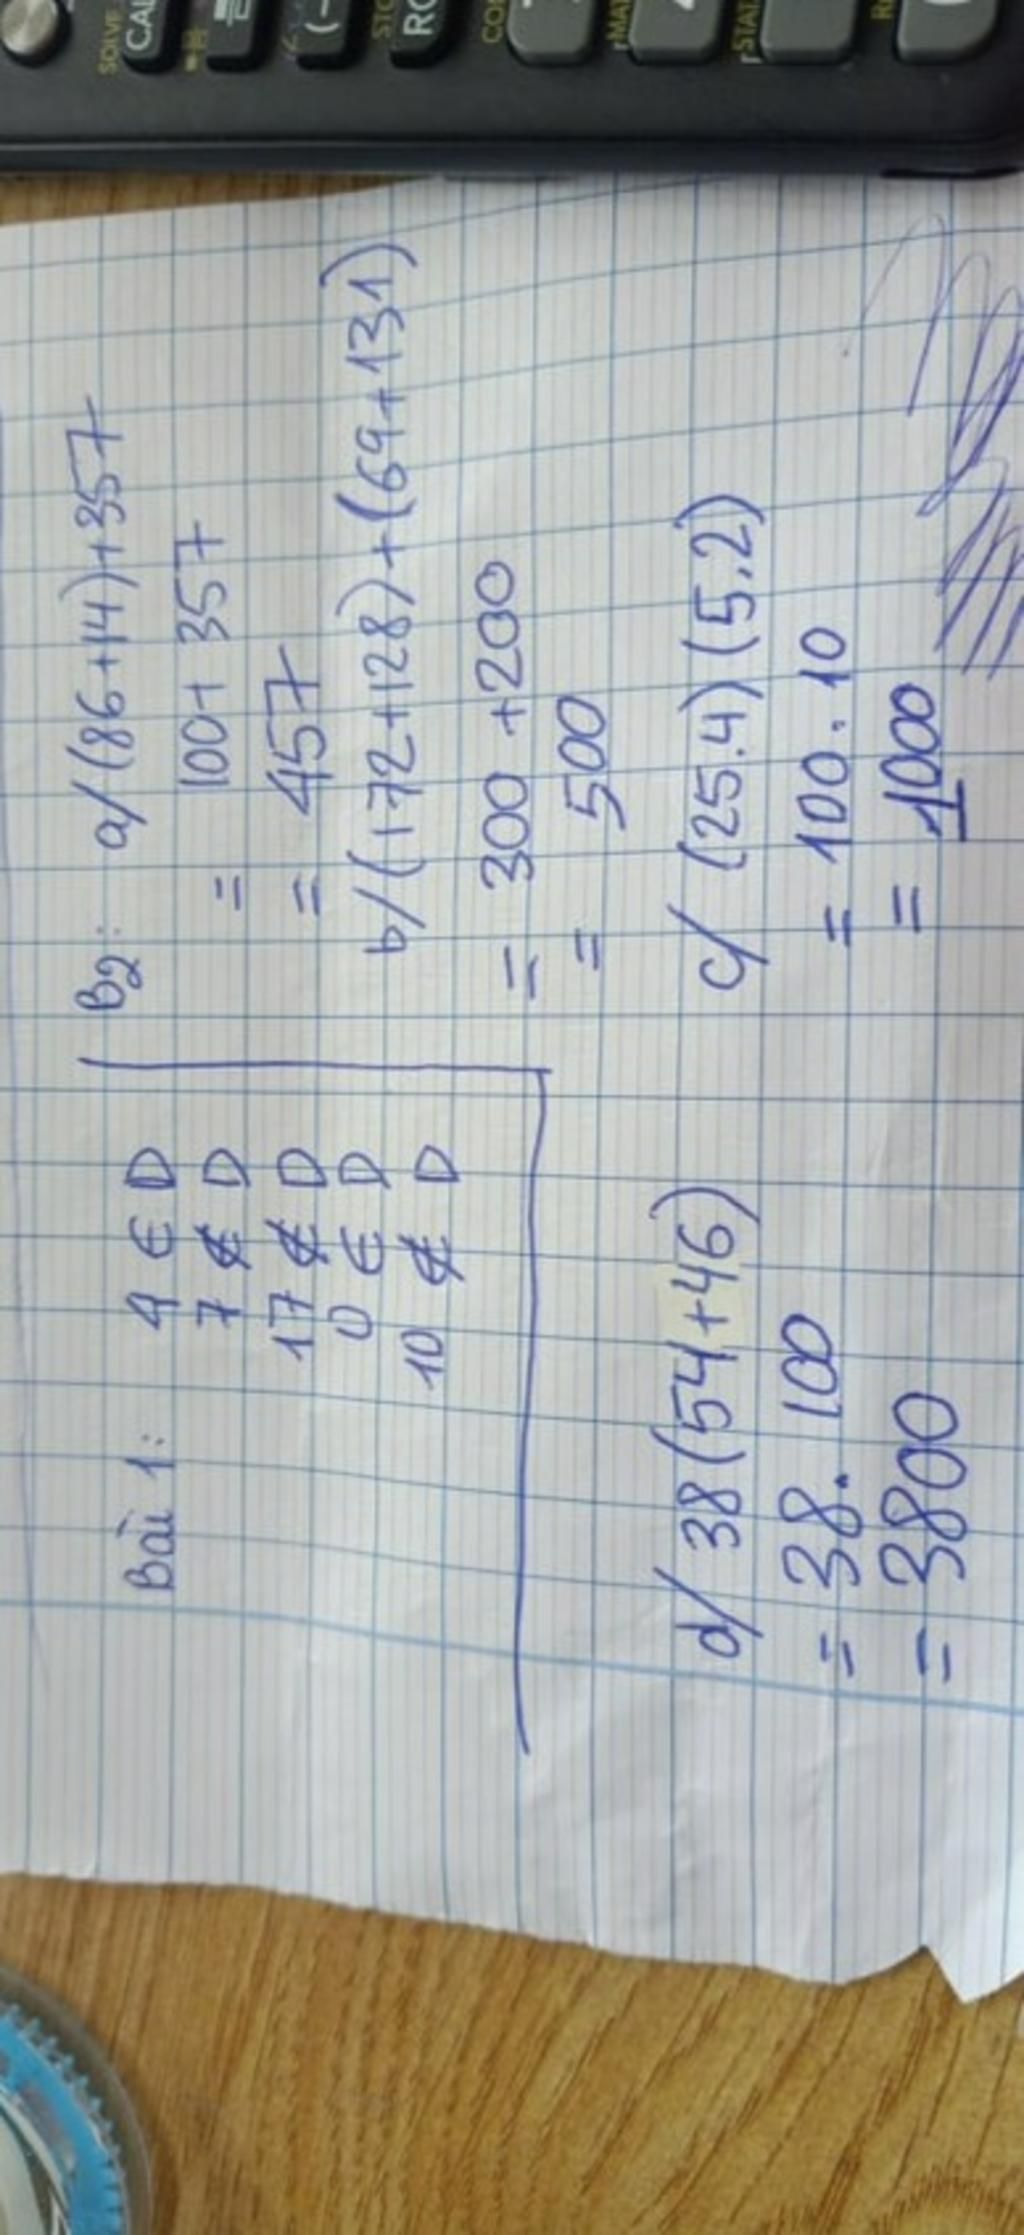 Bài 1:
9 ∈ D
7 ∉ D
17 ∉ D
0 ∈ D
10 ∉ D
B2: a/ (86+14)+357
= 100+ 357
= 457
b/ (172+128)+(69+131)
= 300 +200
= 500
c/ (25.4) (5.2)
= 100.10
= 1000
d/ 38(54+46)
= 38.100
= 3800
SOLVE
CAL
(-)
STO
RC